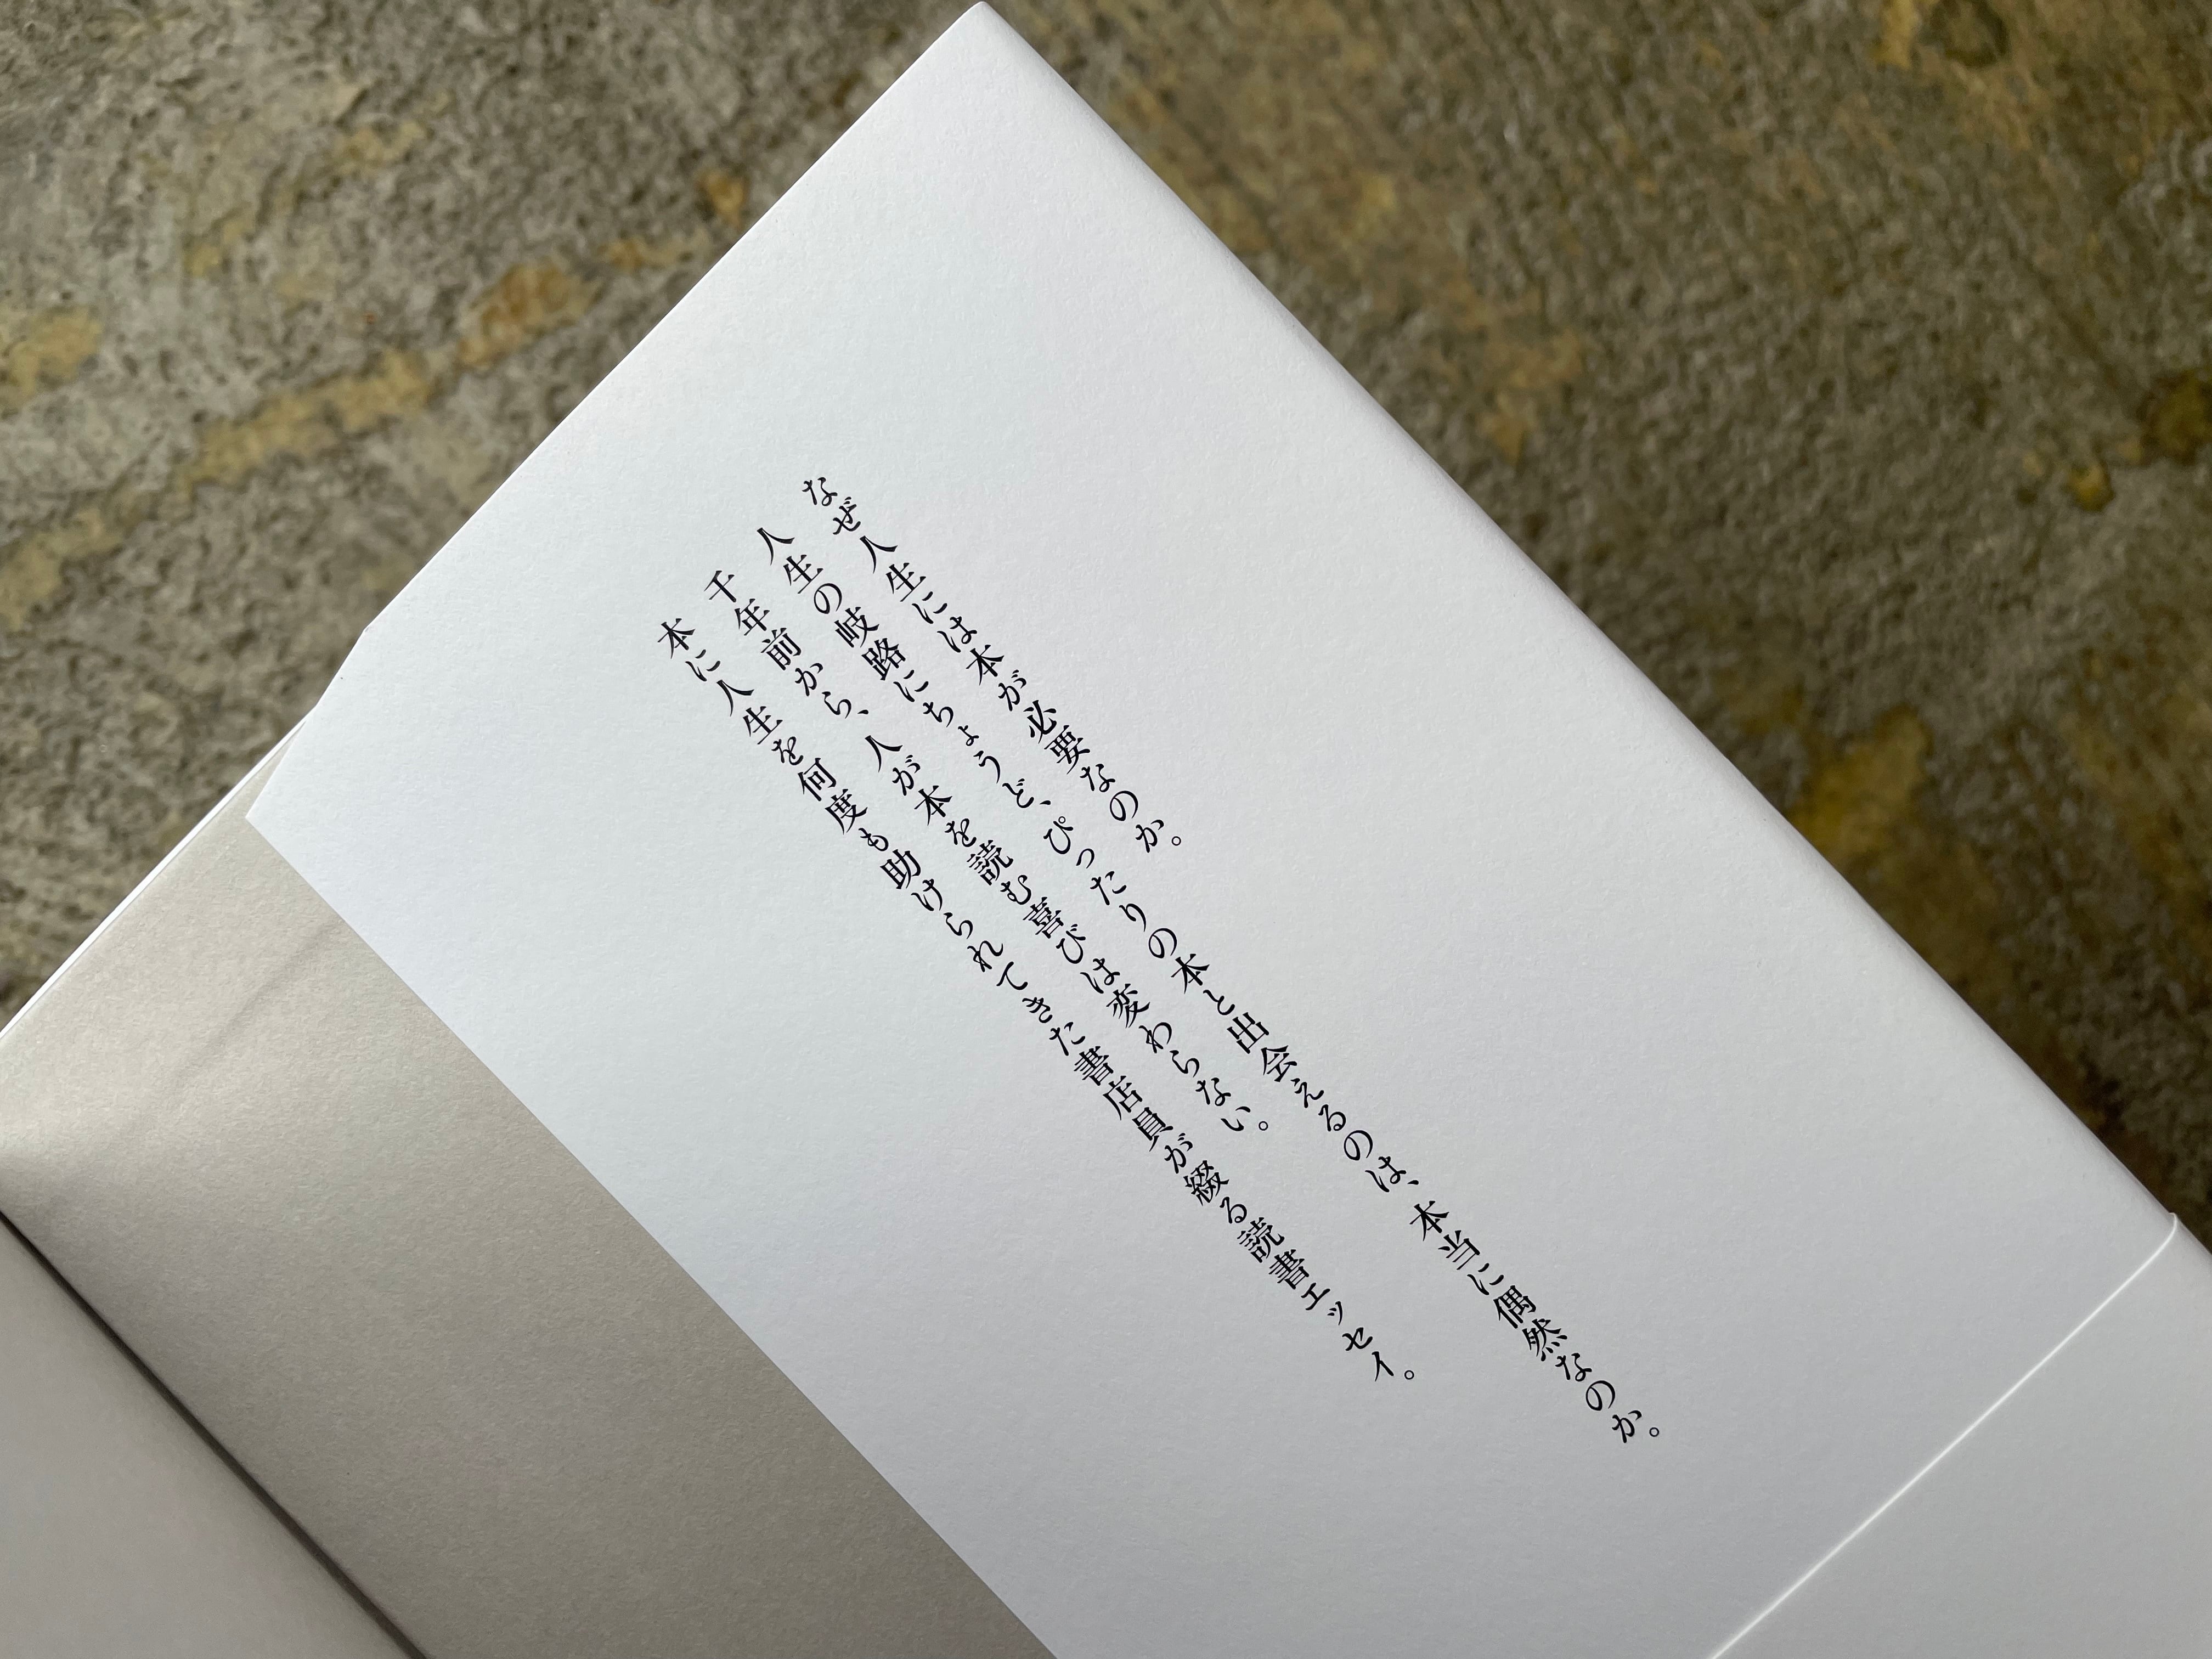 なぜ人生には本が必要なのか。
人生の岐路にちょうど、ぴったりの本と出会えるのは、本当に偶然なのか。
千年前から、人が本を読む喜びは変わらない。
本に人生を何度も助けられてきた書店員が綴る読書エッセイ。